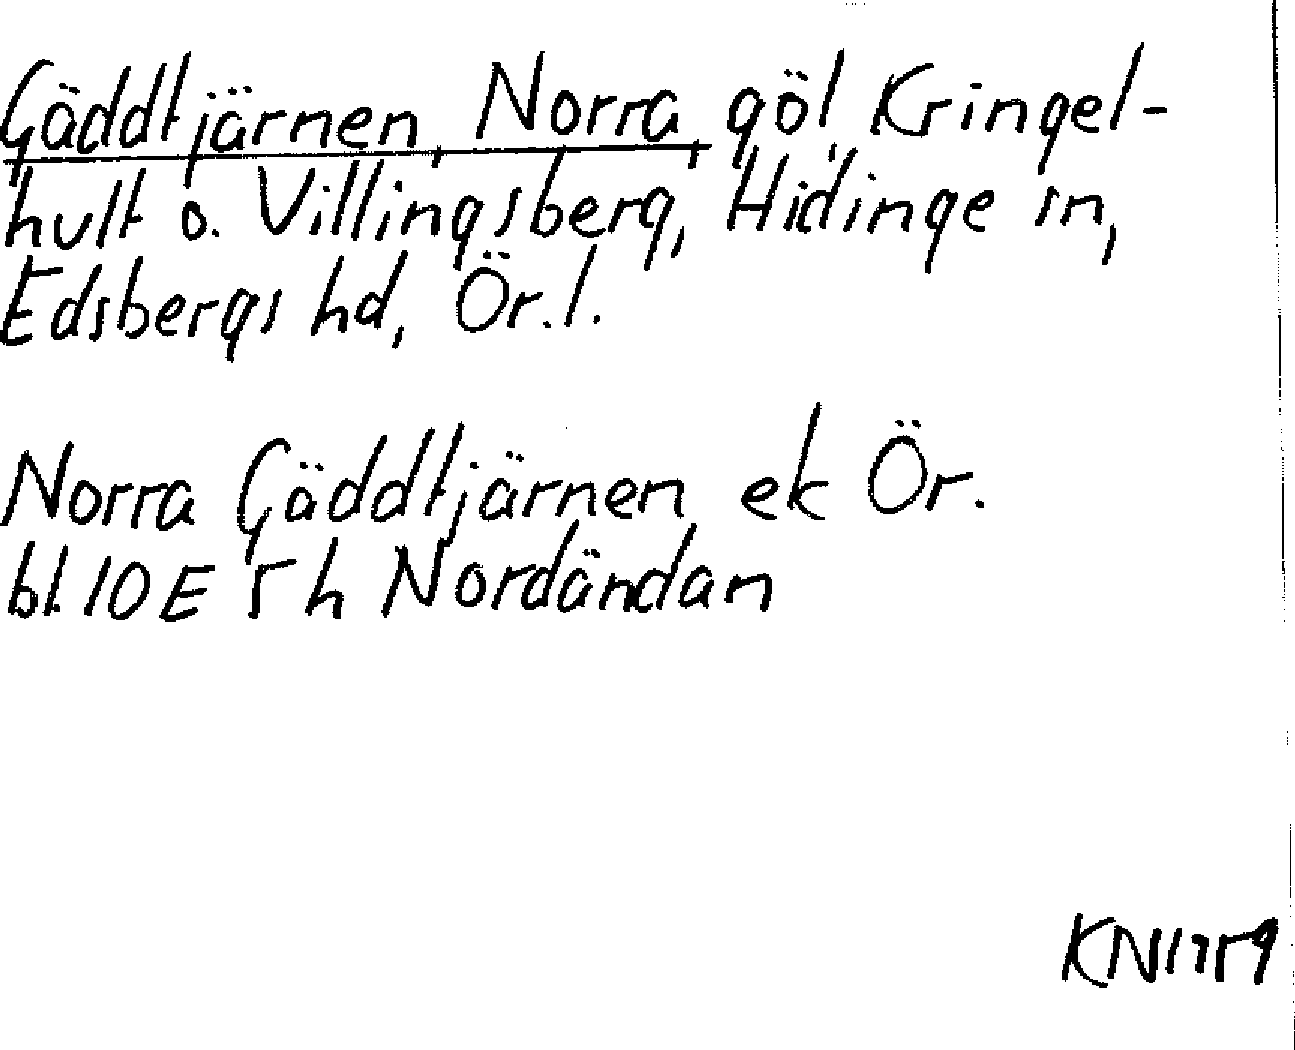 Gäddtjärnen, Norra, göl, Kringel-
hult o. Villingsberg, Hidinge sn,
Edsbergs hd, Ör.l.
Norra Gäddtjärnen, ek Ör.
bl.10E 5 h Nordändan